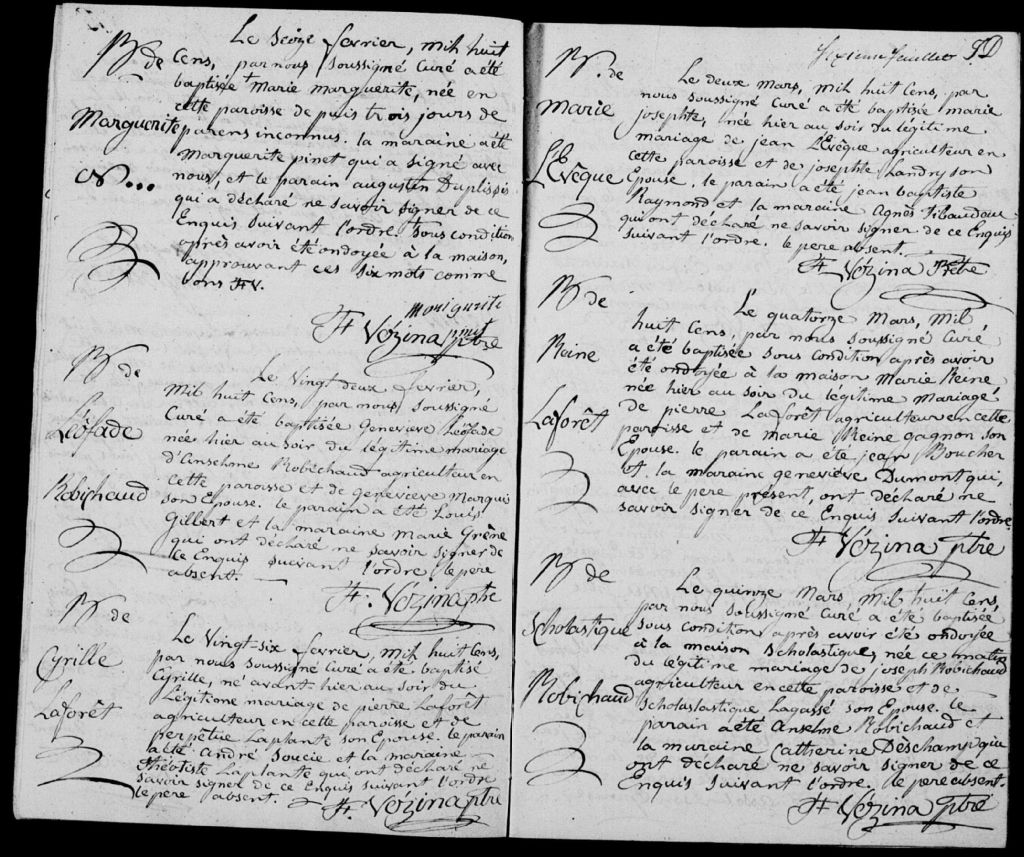 B de
Marguerite
&...
Le Seize fevrier, mil huit
Cens, par nous Soussigné Curé a été
baptisée Marie Marguerite, née en
cette paroisse depuis trois jours de
parens inconnus. la maraine a été
Marguerite pinet qui a signé avec
nous, et le parain augustin Duplissis
qui a décharé ne savoir signer de ce
Enquis suivant l'ordre. Sous condition
après avoir été ondoyée à la maison,
approuvant ces six mots comme
bons FV.
Marigurite
pinet
F Vézina ptre
B de
Léofade
Robichaud
Le Vingt deux fevrier,
Mil huit Cens, par nous Soussigné
Curé a été baptisée Genevieve Léofade
née hier au soir du légitime mariage
d'Anschme Robichaud agriculteur en
cette paroisse et de genevieve Marquis
son Epouse. le parain a été Louis
Gilbert et la maraine Marie Grène
qui ont décharé ne savoir signer de
ce Enquis suivant l'ordre, le pere
absent.
F. Vézina ptre
B de
Cyrille
Laforêt
Le Vingt-six fevrier, mil huit Cens,
par nous Soussigné Curé a été baptisé
Cyrille, né avant hier au soir du
Légitime mariage de pierre Laforêt
agriculteur en cette paroisse et de
perpétue Laplante son Epouse. le parain
a été André Soucie et la maraine
Théotiste Laplante qui ont décharé ne
savoir signer de ce Enquis suivant l'ordre
le pere absent.
F. Vézina ptre
Sixieme feuillet
B. de
Marie
L'Evêque
Le deux Mars, Mil huit Cens, par
nous Soussigné Curé a été baptisée marie
josephte, née hier au soir Du légitime
mariage de jean L'Evêque agriculteur en
cette paroisse et de josephte Landry son
Epouse. le parain a été jean baptiste
Raymond et la maraine Agnès Tibaudau
qui ont décharé ne savoir signer de ce Enquis
suivant l'ordre. le pere absent.
F Vézina Ptre
B de
Reine
Laforêt
Le quatorze Mars, Mil
huit Cens, par nous soussigné Curé
a été baptisée Sous Condition après avoir
été ondoyée à la maison Marie Reine
née hier au soir du légitime Mariage
de pierre Laforêt agriculteur en cette
paroisse et de marie Reine gagnon son
Epouse. le parain a été jean Boucher
et la maraine genevieve Dumont qui,
avec le pere présent, ont décharé ne
savoir signer de ce Enquis Suivant l'ordre
F Vézina ptre
B de
Scholastique
Robichaud
Le quinze Mars, Mil huit Cens,
par nous Soussigné Curé a été baptisée
Sous Condition après avoir été ondoyée
à la maison Scholastique, née ce matin
du légitime mariage de joseph Robichaud
agriculteur en cette paroisse et de
Scholastique Lagassé son Epouse. le
parain a été Anselme Robichaud et
la maraine Catherine Deschamp qui
ont décharé ne savoir signer de ce
Enquis suivant l'ordre. le pere absent.
F Vézina Ptre